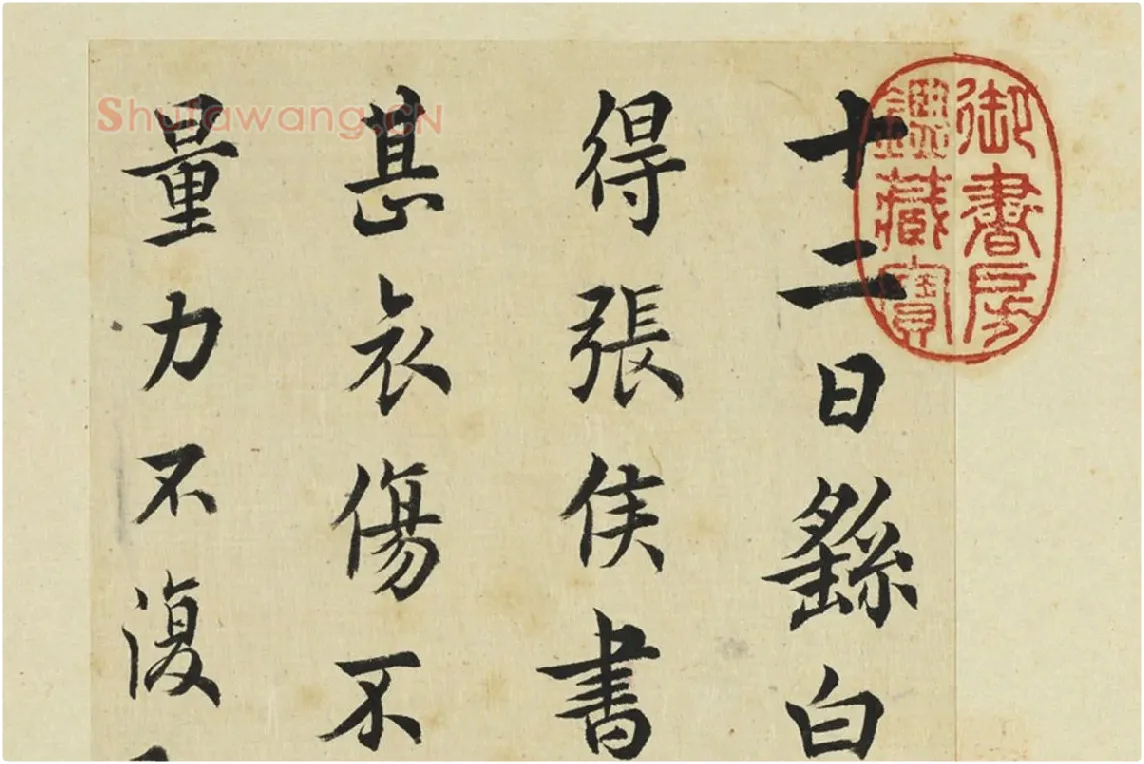 御書房
鑑藏寶
十二日繇白
得張侯書
甚衣傷不
量力不復
Shufawang.CN